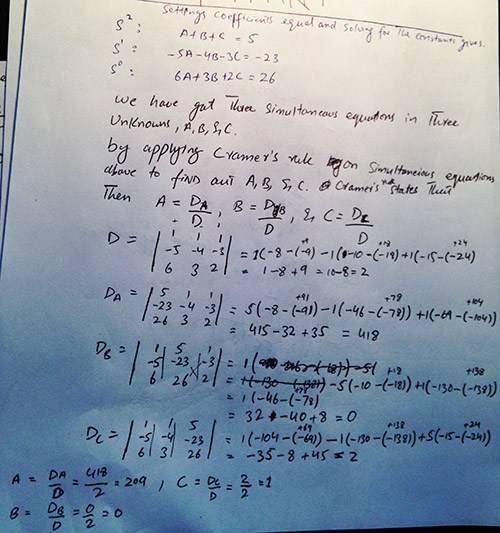 Settings coefficients equal and solving for the constants gives.
S²: A+B+C = 5
S¹: -5A-4B-3C = -23
S⁰: 6A+3B+2C = 26
we have got Three simultaneous equations in Three
Unknowns, A, B, & C.
by applying Cramer's rule on simultaneious equations
above to find out A, B, & C. Cramer's rule states that
Then A = DA/D, B = DB/D, & C = DC/D
D = | 1 1 1 |
| -5 -4 -3 | = 1(-8-(-9) -1(-10-(-18) +1(-15-(-24)
+9 +18 +24
| 6 3 2 | = 1-8+9 = 10-8 = 2
DA = | 5 1 1 |
| -23 -4 -3 | = 5(-8-(-91) -1(-46-(-78)) +1(-69-(-104))
+91 +78 +104
| 26 3 2 | = 415-32+35 = 418
DB = | 1 5 1 |
| -5 -23 -3 |
| 6 26 2 | -5(-10-(-18)) +1(-130-(-138))
+18 +138
= 1(-46-(-78)
+78
= 32-40+8 = 0
DC = | 1 1 5 |
| -5 -4 -23 | = 1(-104-(-69) -1(-130-(-138)) +5(-15-(-24))
+69 +138 +24
| 6 3 26 | = -35-8+45 = 2
A = DA/D = 418/2 = 209, C = DC/D = 2/2 = 1
B = DB/D = 0/2 = 0